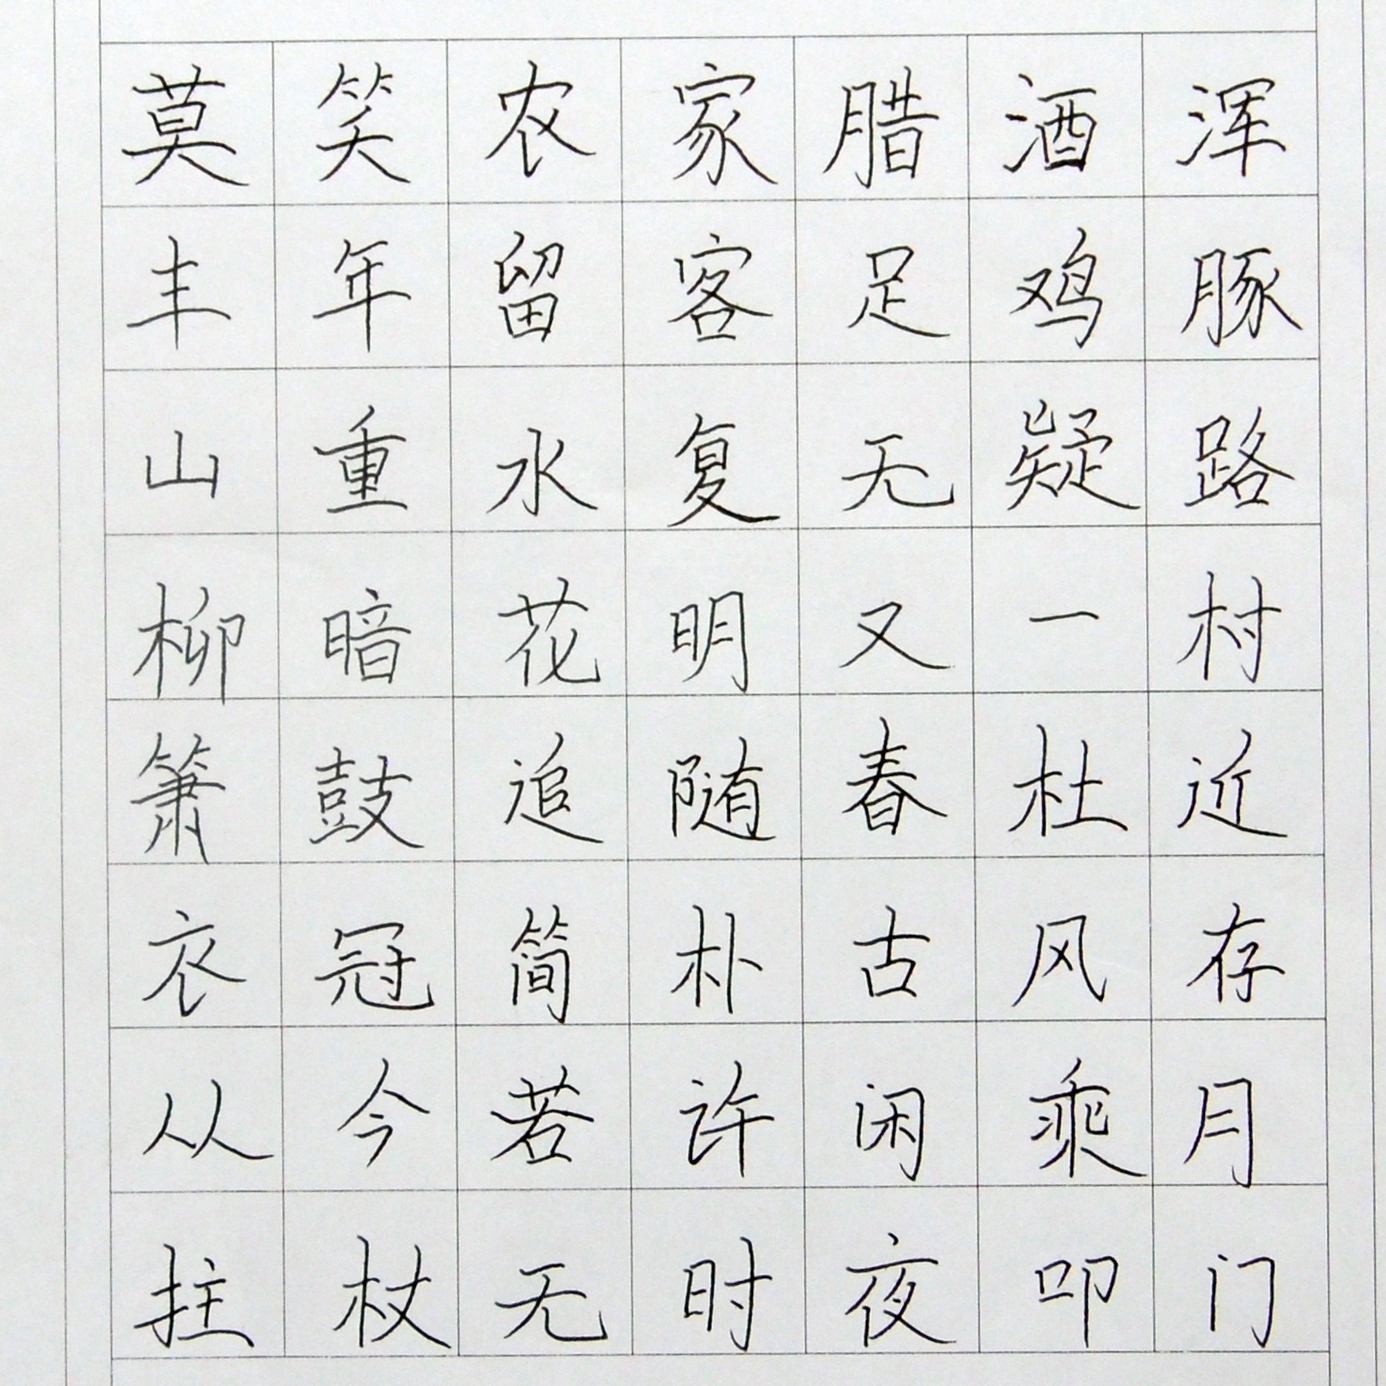 莫笑农家腊酒浑
丰年留客足鸡豚
山重水复无疑路
柳暗花明又一村
箫鼓追随春杜近
衣冠简朴古风存
从今若许闲乘月
拄杖无时夜叩门